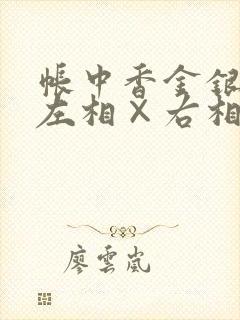 帳中香金銀
左相×右相
廖雲嵐